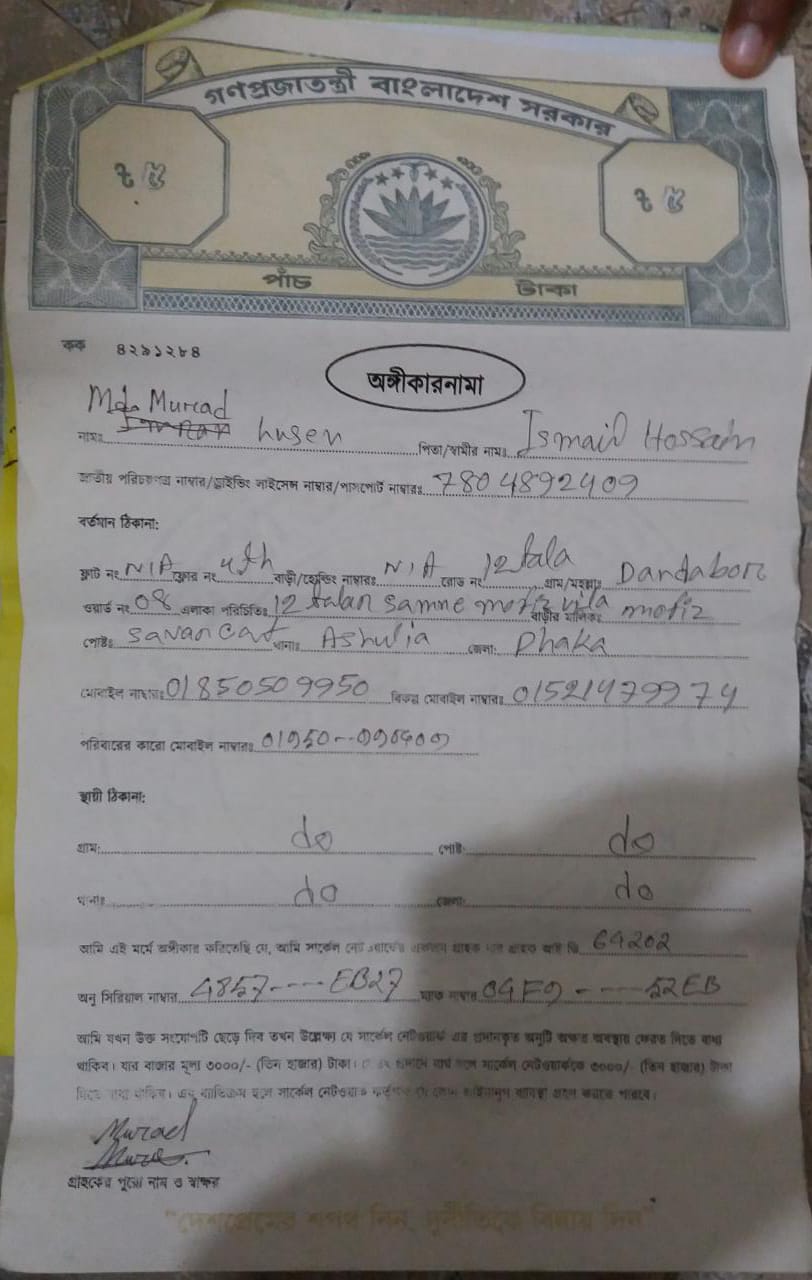 গণপ্রজাতন্ত্রী বাংলাদেশ সরকার
৳ ৫ ৳ ৫
পাঁচ টাকা
কক ৪২৯১২৮৪
অঙ্গীকারনামা
Md. Murad
নামঃ husen পিতা/স্বামীর নামঃ Ismail Hossain
জাতীয় পরিচয়পত্র নাম্বার/ড্রাইভিং লাইসেন্স নাম্বার/পাসপোর্ট নাম্বারঃ 7804892409
বর্তমান ঠিকানা:
ফ্লাট নং N/A ফ্লোর নং 4th বাড়ী/হোল্ডিং নাম্বারঃ N/A রোড নং 12 tala গ্রাম/মহল্লাঃ Dandabor
ওয়ার্ড নং 08 এলাকা পরিচিতিঃ 12 talar samne mofiz vila বাড়ীর মালিকঃ mofiz
পোষ্টঃ savar cat থানাঃ Ashulia জেলা: Dhaka
মোবাইল নাম্বারঃ 01850509950 বিকল্প মোবাইল নাম্বারঃ 01521479974
পরিবারের কারো মোবাইল নাম্বারঃ
স্থায়ী ঠিকানা:
গ্রাম: do পোষ্ট: do
থানাঃ do জেলা: do
আমি এই মর্মে অঙ্গীকার করিতেছি যে, আমি সার্কেল নেট ওয়ার্কের একজন গ্রাহক আই ডি 64202
অনু সিরিয়াল নাম্বার 4857----EB27 ম্যাক নাম্বার 04F9 - --- 52EB
আমি যখন উক্ত সংযোগটি ছেড়ে দিব তখন উল্লেক্ষ্য যে সার্কেল নেটওয়ার্ক এর প্রদানকৃত অনুটি অক্ষত অবস্থায় ফেরত দিতে বাধ্য
থাকিব। যার বাজার মূল্য ৩০০০/- (তিন হাজার) টাকা। সার্কেল নেটওয়ার্ককে ৩০০০/- (তিন হাজার) টাকা
দিতে বাধ্য থাকিব। এর ব্যতিক্রম হলে সার্কেল নেটওয়ার্ক কর্তৃপক্ষ যে কোন আইনানুগ ব্যবস্থা গ্রহন করতে পারবে।
Murad
গ্রাহকের পুরো নাম ও স্বাক্ষর
"দেশপ্রেমের শপথ নিন, দুর্নীতিকে বিদায় দিন"